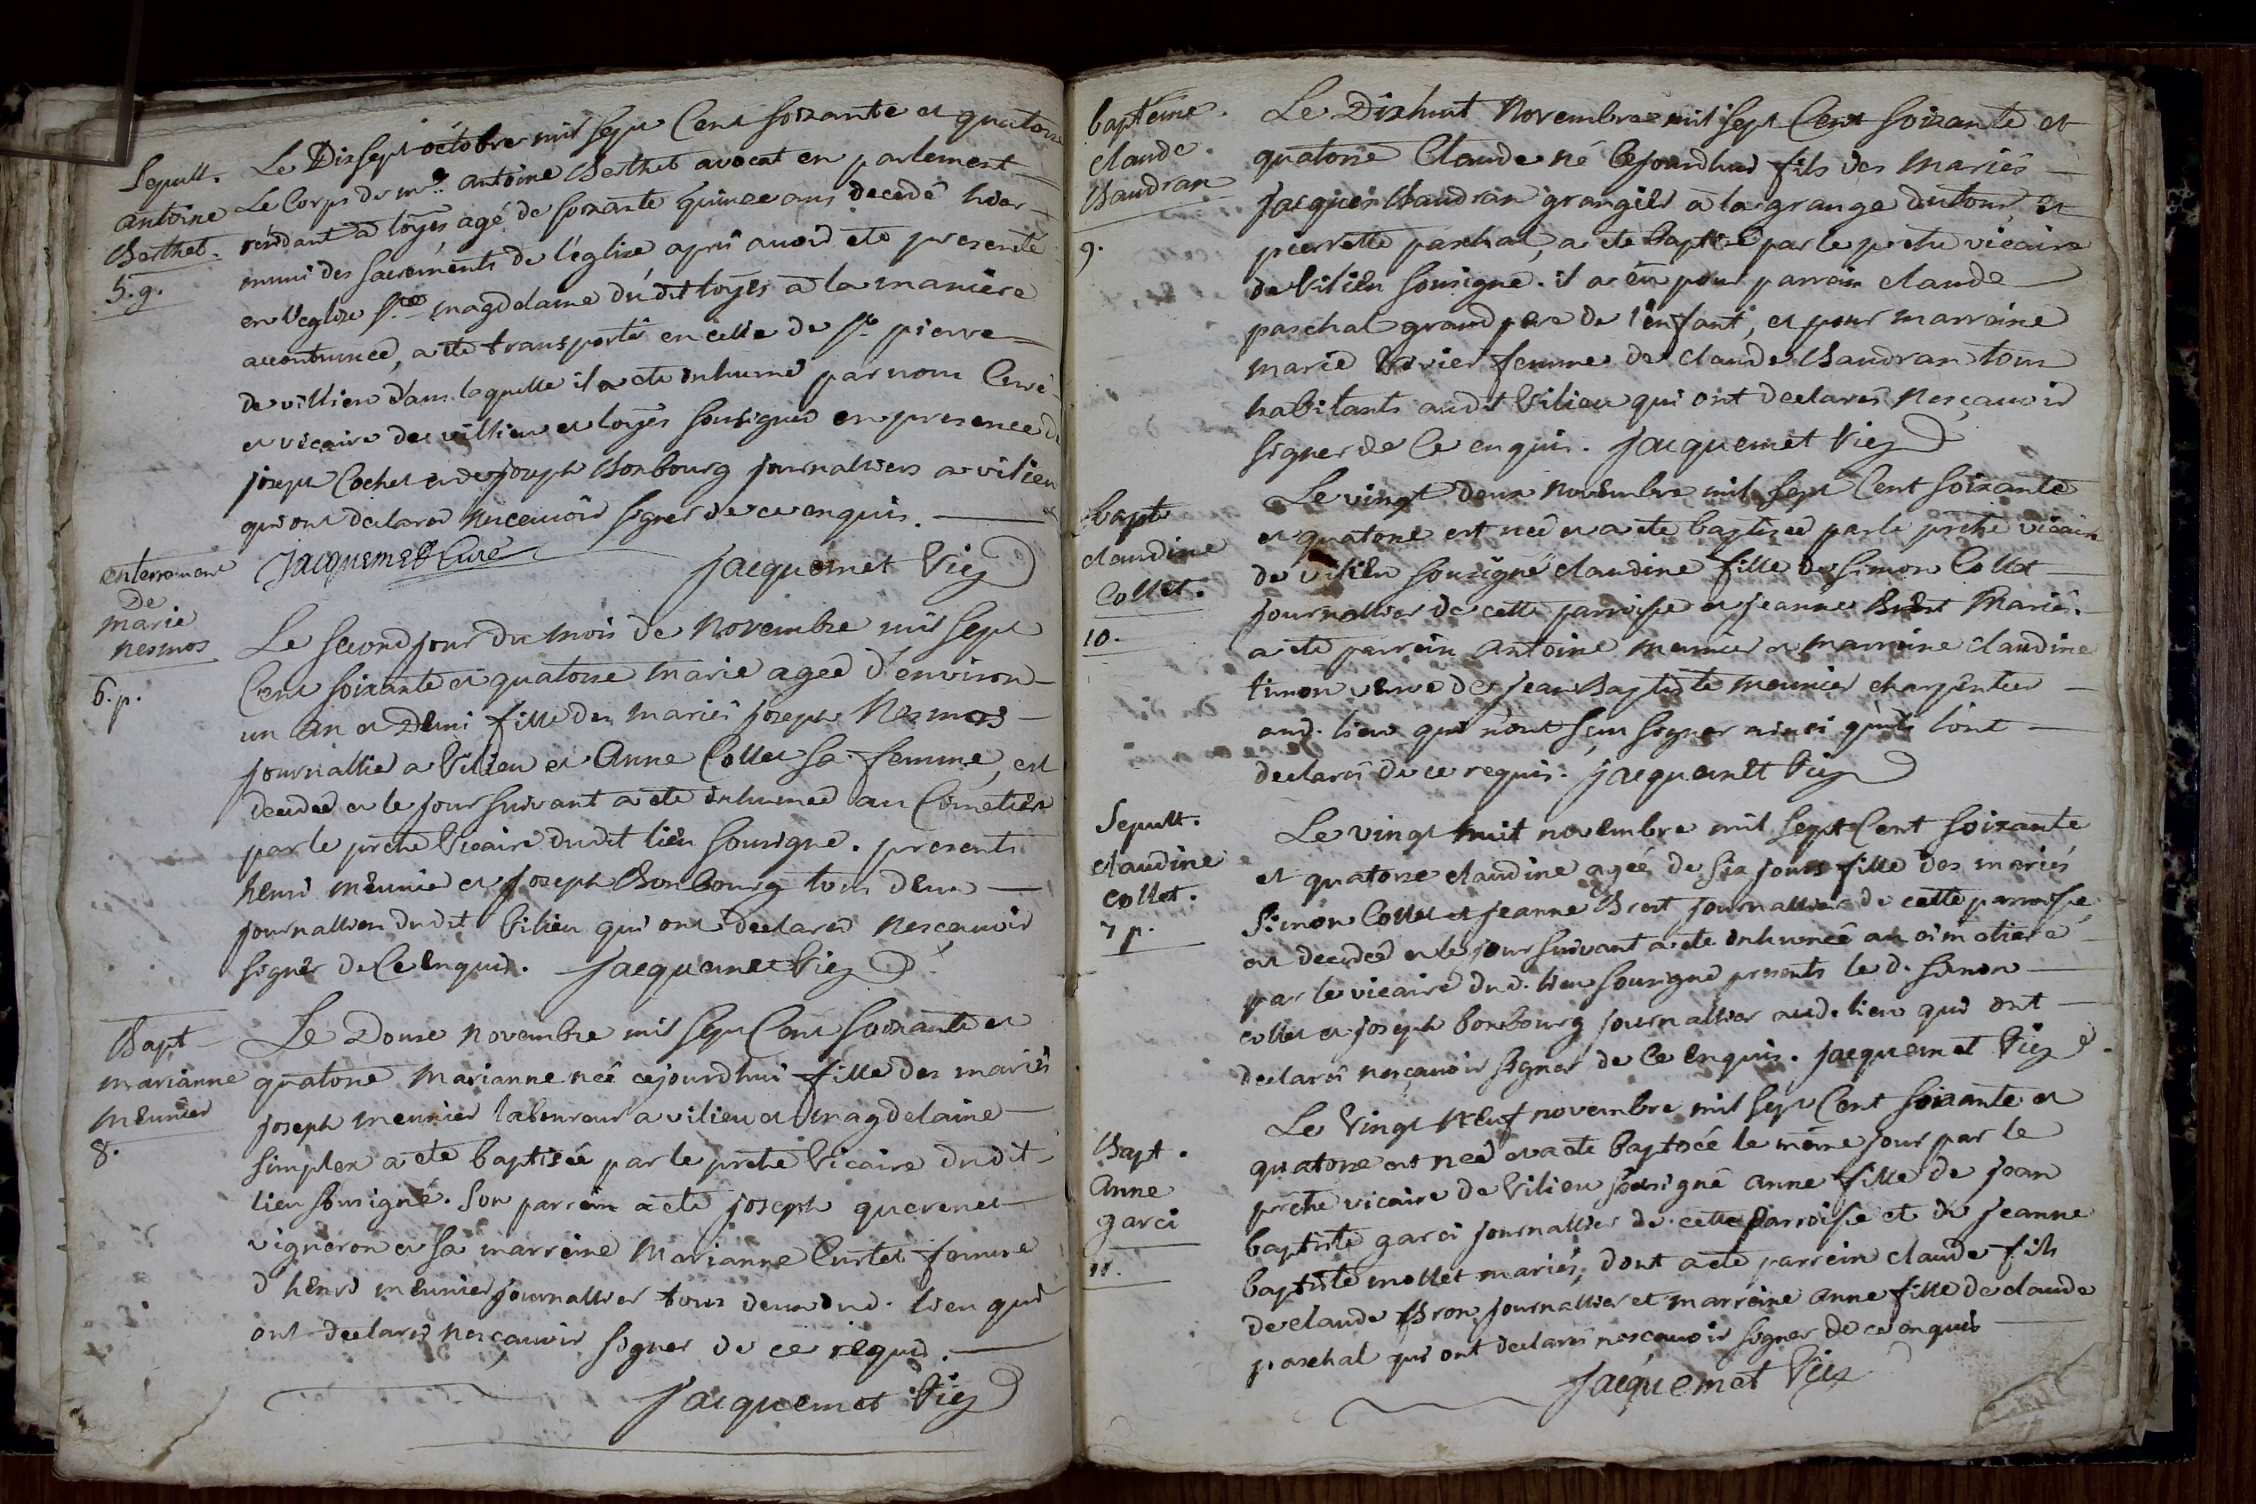 Sepult.
antoine
Berthet.
5. g.
Le Dixsept octobre mil sept Cent soixante et quatorze
Le Corps de mre antoine Berthet avocat en parlement
résidant a loyes agé de soixante quinze ans decedé hier
muni des sacrements de l'église aprés avoir ete presenté
en l'eglise Ste magdelaine du dit loyes a la maniere
accoutumée, a ete transporté en celle de St pierre
de villieu dans laquelle il a ete inhumé par nous Curé
et vicaire de villieu et loyes sousignes en presence de
joseph Cochet et de joseph Bonbourg journalliers a vilieu
qui ont declarés nescavoir signer de ce enquis.
Jacquemet Curé
Jacquemet Vic
enterrement
de
marie
nesmos
6. p.
Le second jour du mois de Novembre mil sept
Cent soixante et quatorze marie agée d'environ
un an et Demi fille des mariés joseph Nesmos
journallié a Vilieu et Anne Collet sa femme, est
decedée et le jour suivant a ete inhumée au Cimetiere
par le prêtre Vicaire dudit lieu sousigné. presents
henri meunié et joseph Bonbourg tous deux
journalliers dudit Vilieu qui ont declarés Nescavoir
signer de Ce enquis. Jacquemet Vic
Bapt
marianne
meunier
8.
Le Douze novembre mil sept Cent soixante et
quatorze Marianne née cejourdhui fille des mariés
joseph meunier laboureur a vilieu et magdelaine
simplex a ete baptisée par le prêtre Vicaire dudit
lieu sousigné. Son parrein a ete joseph querenet
vigneron et sa marreine Marianne Curtet femme
d'henri meunier journallier tous deux dud. lieu qui
ont declarés nesçavoir signer de ce requis.
Jacquemet Vic
baptême.
claude
Baudran
9.
Le Dixhuit Novembre mil sept Cent soixante et
quatorze Claude né Cejourdhui fils des mariés
jacques Baudran grangier a la grange dutour et
pierrette paschal, a ete baptisé par le prêtre vicaire
de Vilieu sousigné. il a eu pour parrein claude
paschal grand pere de l'enfant, et pour marraine
marie femme de claude Baudran tous
habitants audit Vilieu qui ont declarés Nesçavoir
signer de Ce enquis. Jacquemet Vic
bapt
claudine
Collet.
10.
Le vingt deux novembre mil sept Cent soixante
et quatorze est née et a ete baptisée par le prêtre vicaire
de vilieu sousigné claudine fille de simon Collet
journallier de cette parroisse et jeanne Brest Mariés.
a ete parrein antoine meunier et marreine claudine
veuve de jean Baptiste meunier charpentier
aud. lieu qui n'ont sçu signer ainsi qu'ils l'ont
declarés de ce requis. jacquemet Vic
Sepult.
claudine
Collet.
7 p.
Le vingt huit novembre mil sept Cent soixante
et quatorze claudine agée de six jours fille des mariés
Simon Collet et jeanne Brest journalliers de cette parroisse
est decedée et le jour suivant a ete inhumée au cimetiere
par le vicaire dud. lieu sousigné presents le d. simon
collet et joseph bonbourg journallier aud. lieu qui ont
declarés nesçavoir signer de Ce enquis. jacquemet Vic
Bapt.
Anne
garci
11.
Le Vingt neuf novembre mil sept Cent soixante et
quatorze est née et a ete baptisée le même jour par le
prêtre vicaire de Vilieu sousigné anne fille de jean
baptiste garci journallier de cette parroisse et de jeanne
baptiste mollet mariés, dont a ete parrein claude fils
de claude Bron journallier et marreine anne fille de claude
paschal qui ont declarés nesçavoir signer de ce enquis
Jacquemet Vic